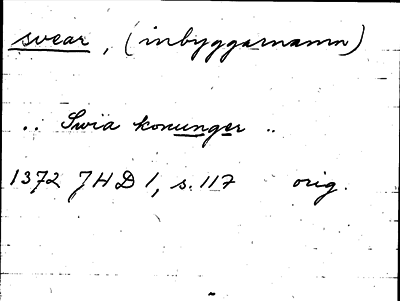 svear, (inbyggarnamn)
.. Swia konunger ..
1372 JHD 1, s. 117 orig.